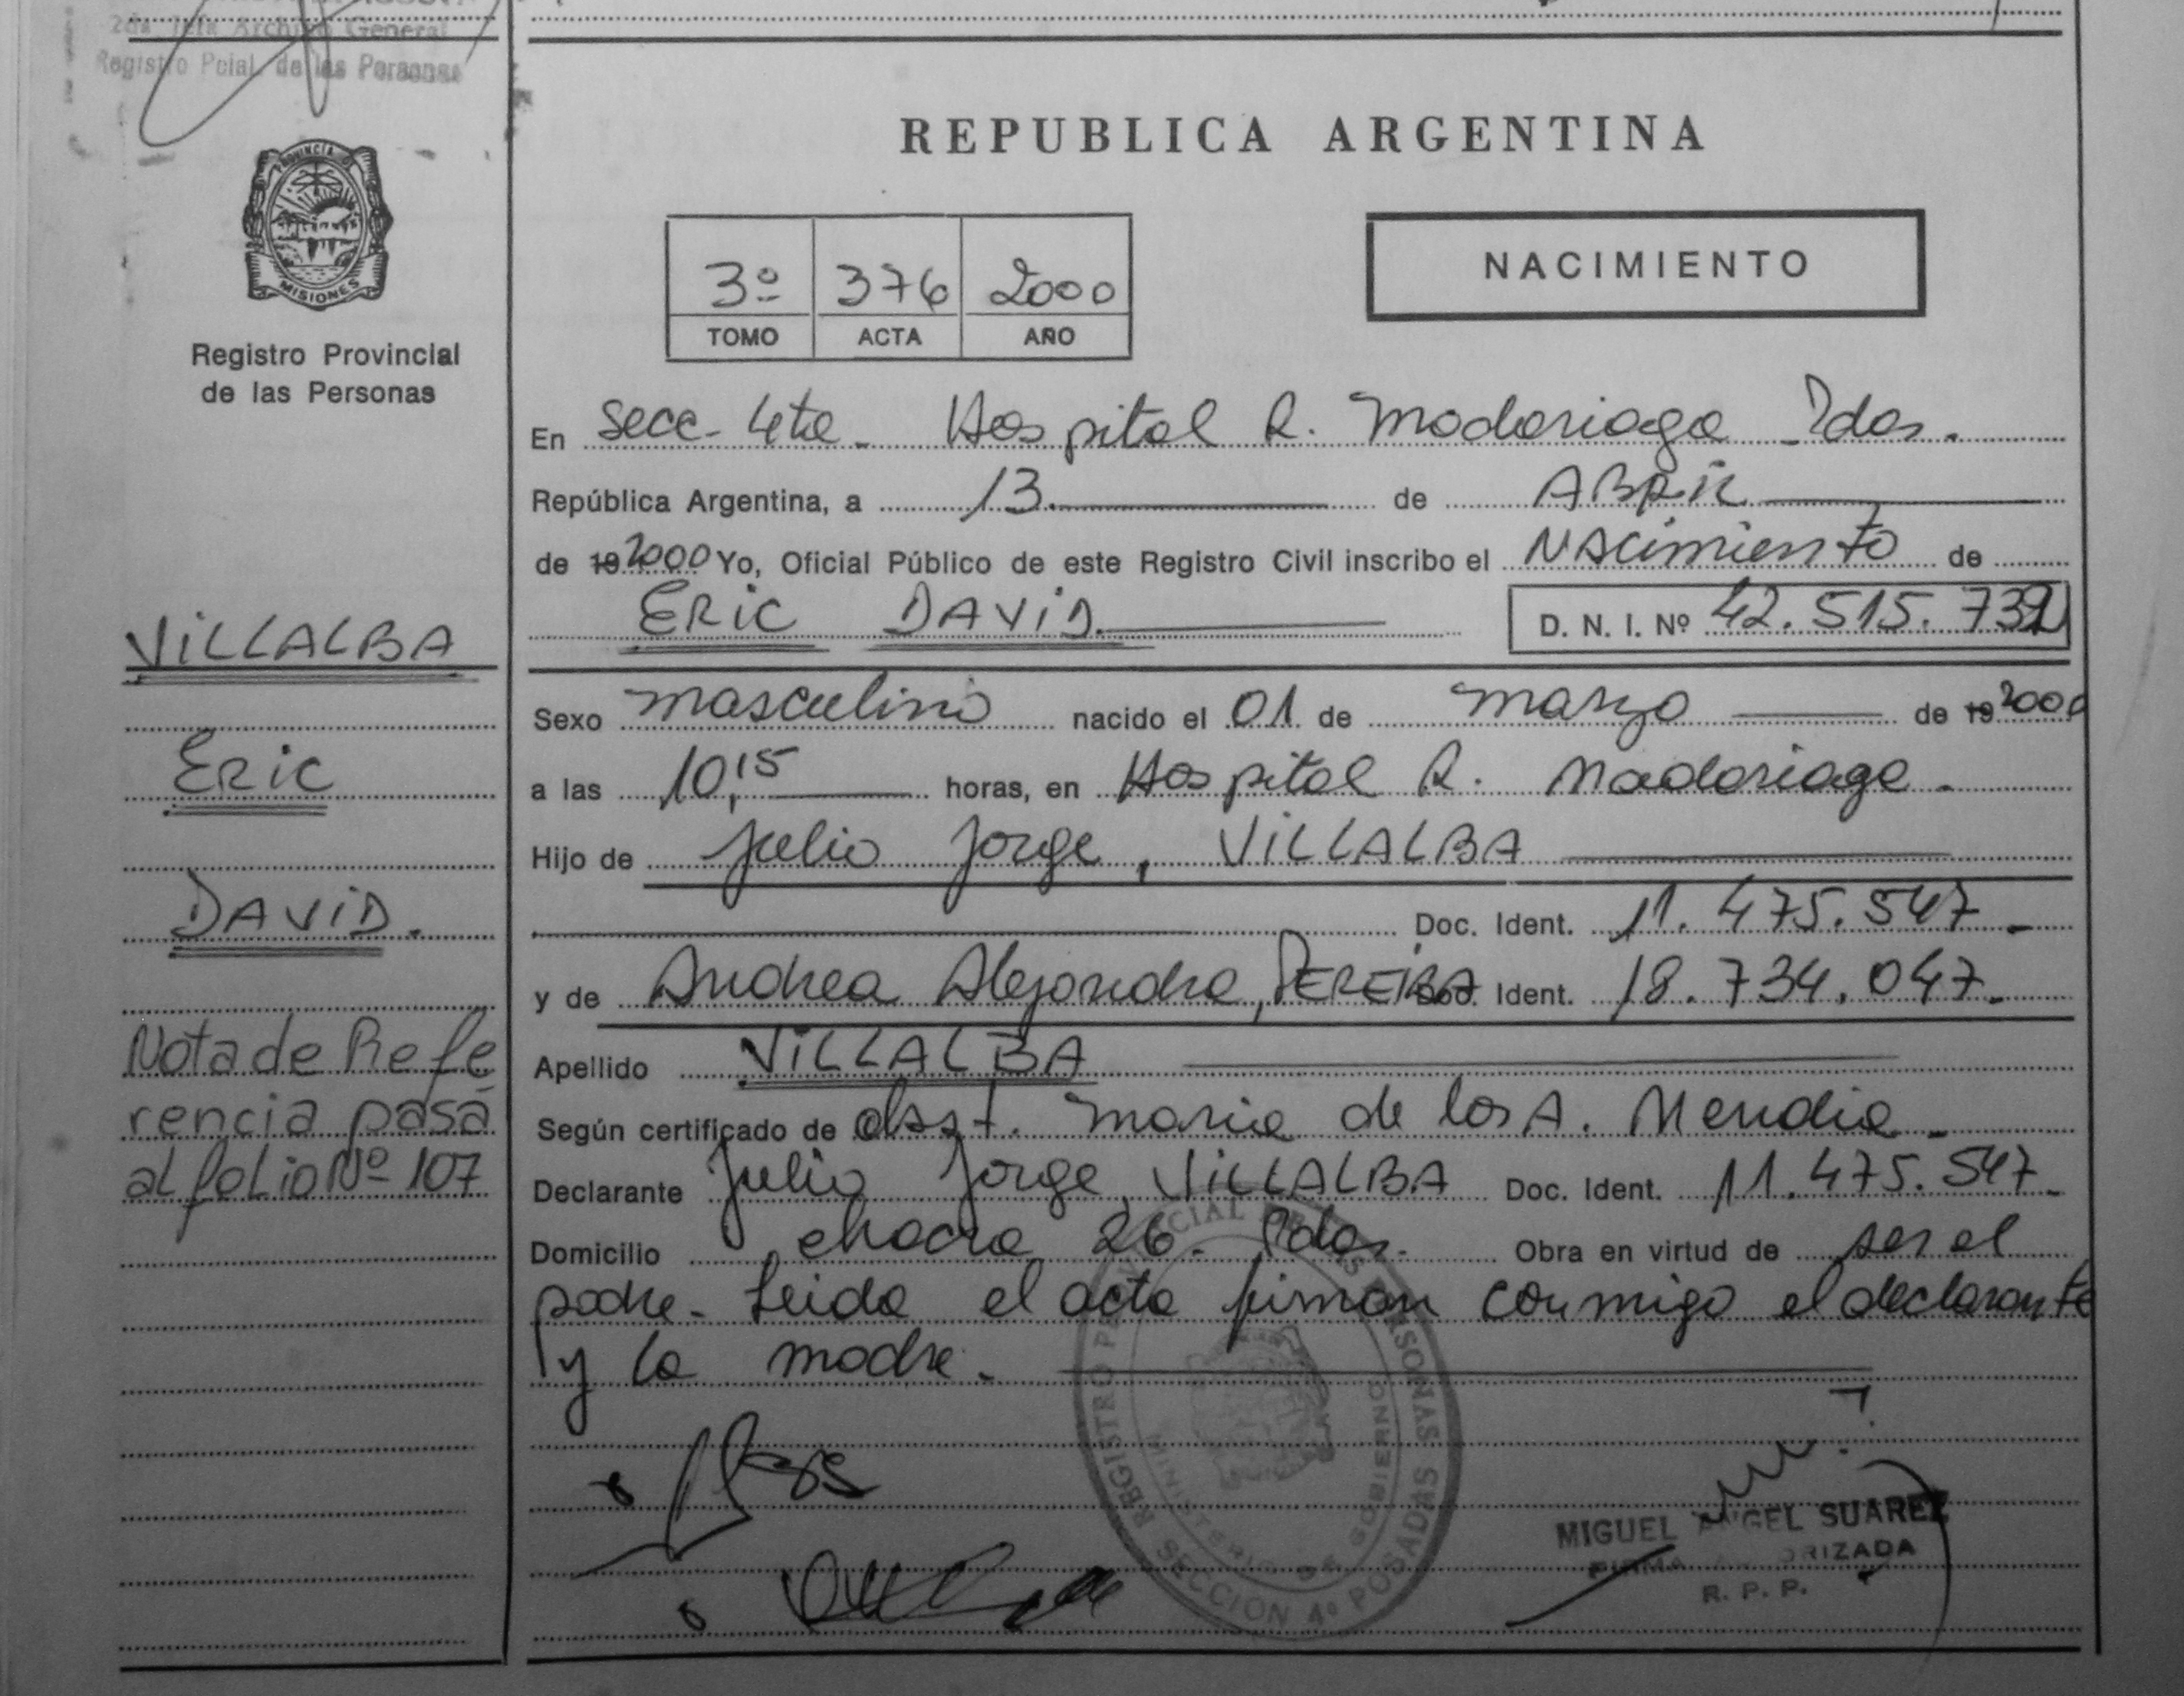 2da Jefa Archivo General
Registro Pcial. de las Personas
PROVINCIA DE
MISIONES
Registro Provincial
de las Personas
VILLALBA
ERIC
DAVID.
Nota de Refe
rencia pasa
al folio Nº 107
REPUBLICA ARGENTINA
3º 376 2000
TOMO ACTA AÑO
NACIMIENTO
En Secc. 4ta. Hospital R. Madariaga Pdas.
República Argentina, a 13. de ABRIL
de 19 2000 Yo, Oficial Público de este Registro Civil inscribo el Nacimiento de
ERIC DAVID. D. N. I. Nº 42.515.732
Sexo masculino nacido el 01 de marzo de 19 2000
a las 10,15 horas, en Hospital R. Madariaga.
Hijo de Julio Jorge, VILLALBA
Doc. Ident. 11.475.547
y de Andrea Alejandra, PEREIRA Doc. Ident. 18.734.047.
Apellido VILLALBA
Según certificado de obst. Maria de los A. Mendia
Declarante Julio Jorge, VILLALBA Doc. Ident. 11.475.547
Domicilio chacra 26. Pdas. Obra en virtud de ser el
padre. Leida el acta firman conmigo el declarante
y la madre.
REGISTRO PROVINCIAL DE LAS PERSONAS
MINISTERIO DE GOBIERNO
SECCION 4º POSADAS
MIGUEL ANGEL SUAREZ
FIRMA AUTORIZADA
R. P. P.